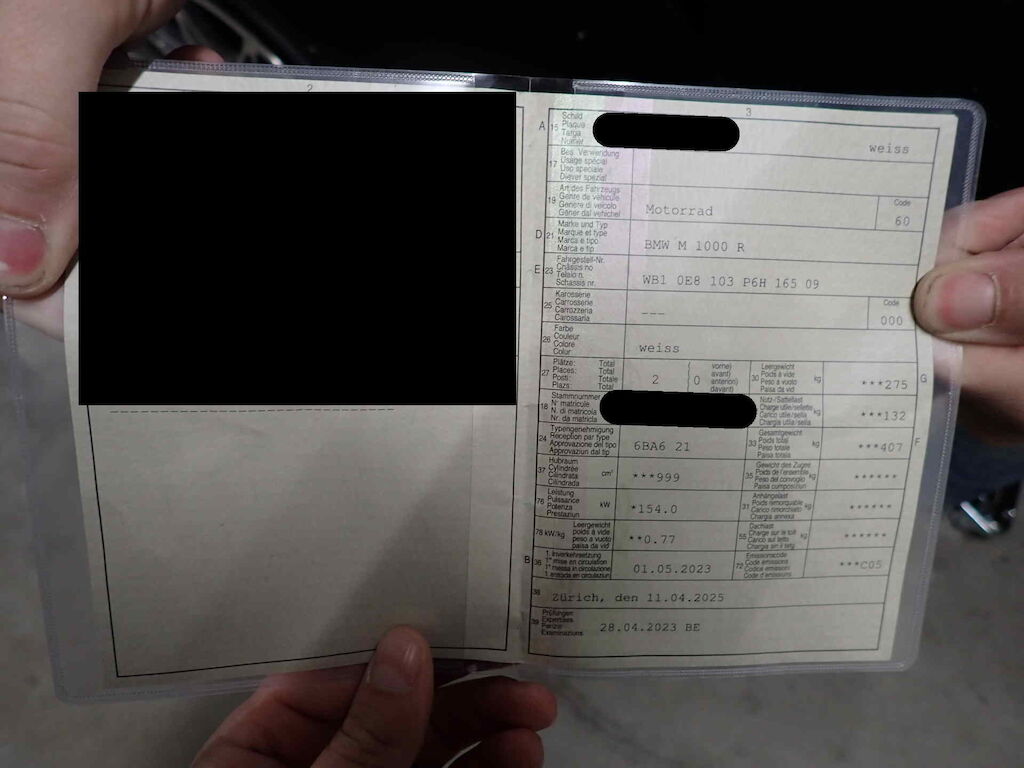 2
3
A 15 Schild
Plaque
Targa
Numer
weiss
17 Bes. Verwendung
Usage spécial
Uso speciale
Diever spezial
19 Art des Fahrzeugs
Genre de véhicule
Genere di veicolo
Gener dal vehichel
Motorrad
Code
60
D 21 Marke und Typ
Marque et type
Marca e tipo
Marca e tip
BMW M 1000 R
E 23 Fahrgestell-Nr.
Châssis no
Telaio n.
Schassis nr.
WB1 0E8 103 P6H 165 09
25 Karosserie
Carrosserie
Carrozzeria
Carossaria
---
Code
000
26 Farbe
Couleur
Colore
Colur
weiss
27 Plätze: Total
Places: Total
Posti: Totale
Plazs: Total
2
( vorne)
0 avant)
anteriori)
davant)
30 Leergewicht
Poids à vide
Peso a vuoto
Paisa da vid
kg
***275
G
18 Stammnummer
N° matricule
N. di matricola
Nr. da matricla
Nutz-/Sattellast
Charge utile/sellette
Carico utile/sella
Chargia utila/sella
kg
***132
24 Typengenehmigung
Réception par type
Approvazione del tipo
Approvaziun dal tip
6BA6 21
33 Gesamtgewicht
Poids total
Peso totale
Paisa totala
kg
***407
F
37 Hubraum
Cylindrée
Cilindrata
Cilindrada
cm³
***999
35 Gewicht des Zuges
Poids de l'ensemble
Peso del convoglio
Paisa cumposiziun
kg
******
76 Leistung
Puissance
Potenza
Prestaziun
kW
*154.0
31 Anhängelast
Poids remorquable
Carico rimorchiato
Chargia annexa
kg
******
78 kW/kg
Leergewicht
poids à vide
peso a vuoto
paisa da vid
**0.77
55 Dachlast
Charge sur le toit
Carico sul tetto
Chargia sin il tetg
kg
******
B 36 1. Inverkehrsetzung
1re mise en circulation
1a messa in circolazione
1. entrada en circulaziun
01.05.2023
72 Emissionscode
Code émissions
Codice emissioni
Code d'emissiuns
***C05
38 Zürich, den 11.04.2025
39 Prüfungen
Expertises
Perizie
Examinaziuns
28.04.2023 BE